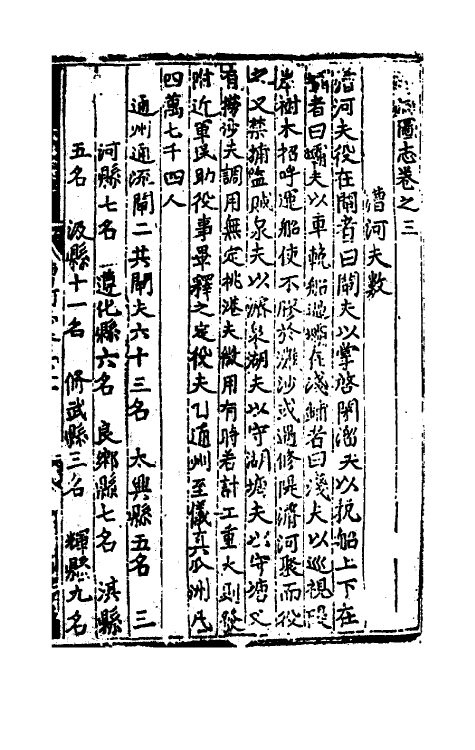 圖志卷之三
漕河夫數
漕河夫役在閘者曰閘夫以掌啓閉溜夫以挽船上下在
者曰壩夫以車輓船過壩在淺鋪者曰淺夫以巡視堤
岸樹木招呼運船使不膠於灘沙或遇修堤濬河聚而役
之又禁捕盜賊泉夫以濬泉湖夫以守湖塘夫以守塘又
有撈沙夫調用無定挑港夫徵用有時若計工重大則發
附近軍民助役事畢釋之定役夫自通州至儀真瓜洲凡
四萬七千四人
通州通流閘二共閘夫六十三名 大興縣五名 三
河縣七名 遵化縣六名 良鄉縣七名 淇縣
五名 汲縣十一名 修武縣三名 輝縣九名